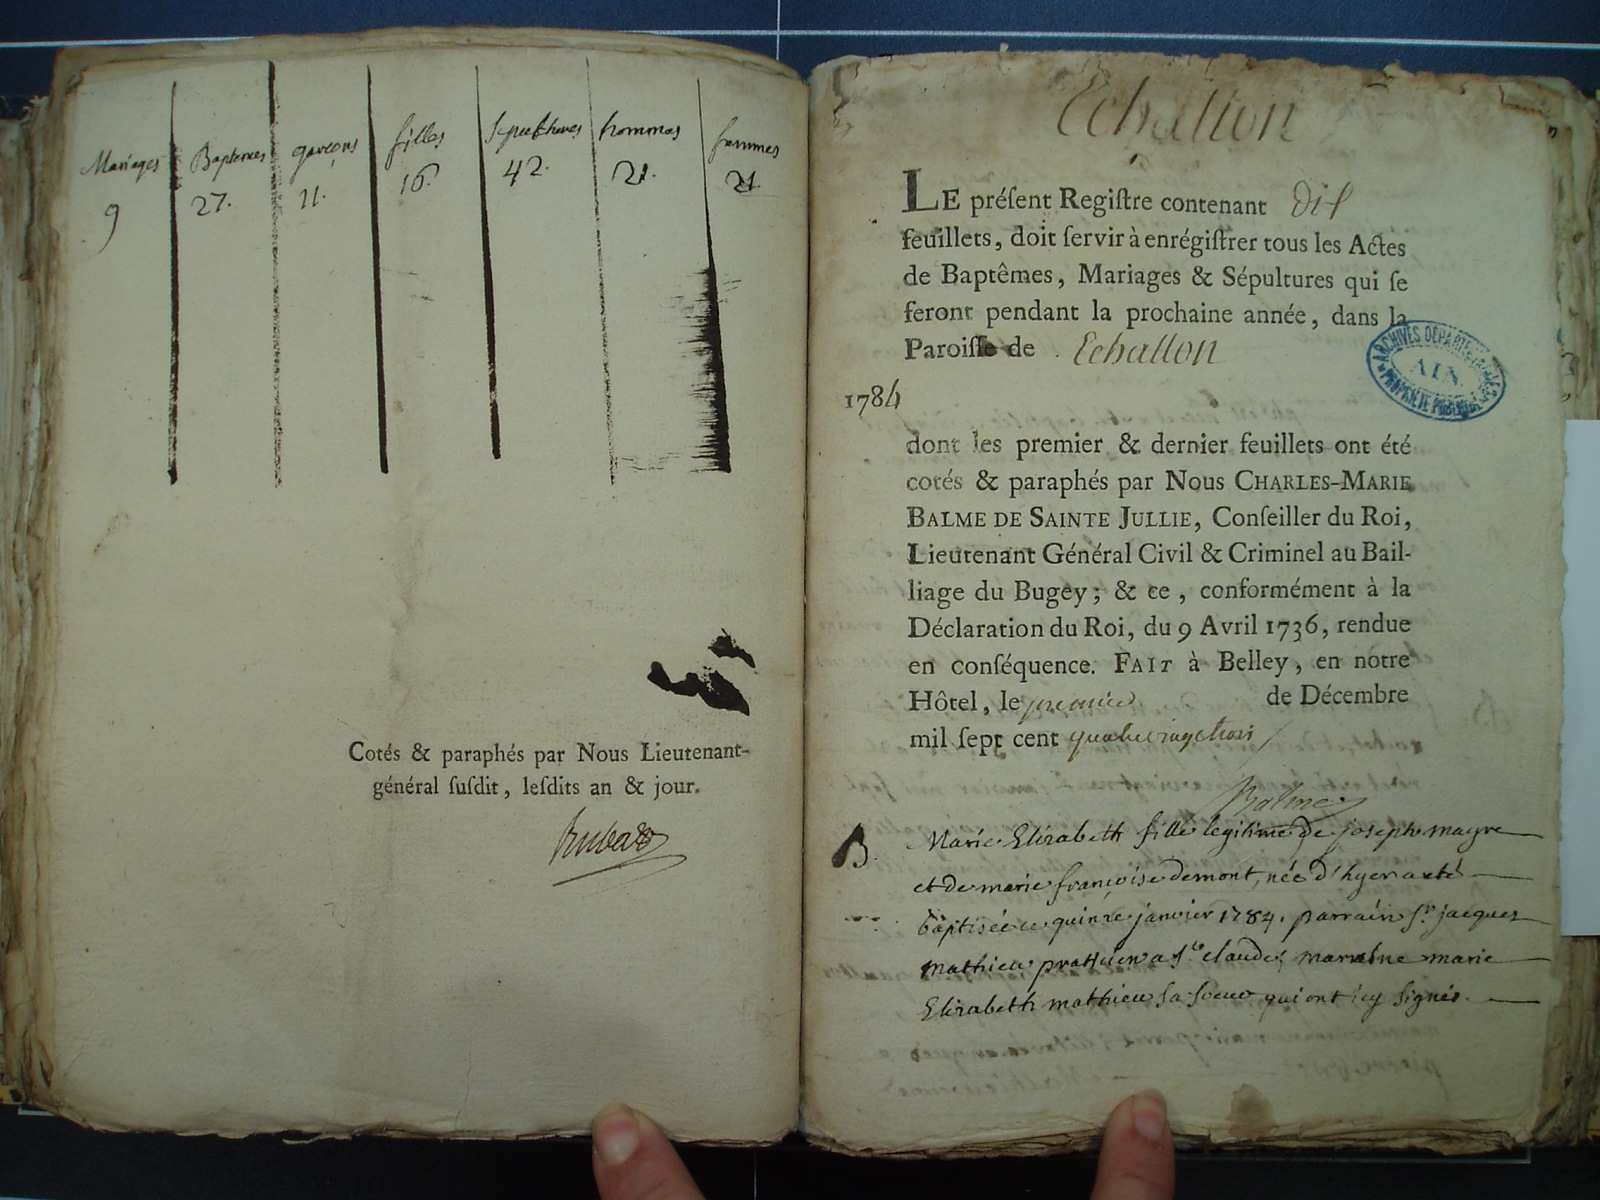 Mariages Baptemes garçons filles Sepultures hommes femmes
9 27. 11. 16. 42. 21. 21.
Cotés & paraphés par Nous Lieutenant-
général ſuſdit, leſdits an & jour.
Echallon
LE préſent Regiſtre contenant dix
feuillets, doit ſervir à enrégiſtrer tous les Actes
de Baptêmes, Mariages & Sépultures qui ſe
feront pendant la prochaine année, dans la
Paroiſſe de Echallon
ARCHIVES DÉPARTEMENTALES
AIN
PROPRIÉTÉ PUBLIQUE
1784
dont les premier & dernier feuillets ont été
cotés & paraphés par Nous CHARLES-MARIE
BALME DE SAINTE JULLIE, Conſeiller du Roi,
Lieutenant Général Civil & Criminel au Bail-
liage du Bugey; & ce, conformément à la
Déclaration du Roi, du 9 Avril 1736, rendue
en conſéquence. FAIT à Belley, en nôtre
Hôtel, le premier de Décembre
mil ſept cent quatre vingt trois
Balme
B. Marie Elizabeth fille legitime de joseph mayre
et de marie françoise demont, née d'hyer a eté
baptisée ce quinze janvier 1784. parrain sr. jacques
mathieu praticien a st. claude, marraine marie
Elizabeth mathieu sa soeur qui ont icy signés.